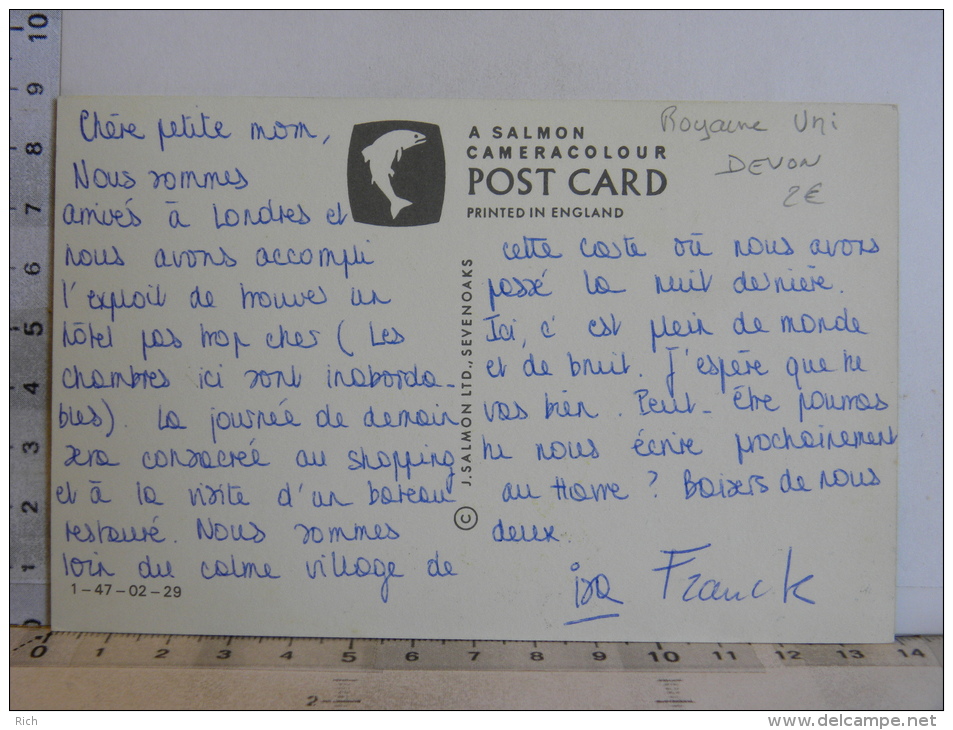 Chère petite mom,
Nous sommes
arrivés à Londres et
nous avons accompli
l'exploit de trouver un
hôtel pas trop cher (Les
chambres ici sont inaborda-
bles). La journée de demain
sera consacrée au shopping
et à la visite d'un bateau
restauré. Nous sommes
loin du calme village de
1-47-02-29
A SALMON
CAMERACOLOUR
POST CARD
PRINTED IN ENGLAND
© J. SALMON LTD., SEVENOAKS
Royaume Uni
DEVON
2€
cette coste où nous avons
passé la nuit dernière.
Ici, c'est plein de monde
et de bruit. J'espère que tu
vas bien. Peut-être pourras
tu nous écrire prochainement
au Havre ? Baisers de nous
deux.
isa Franck
10
9
8
7
6
5
4
3
2
1
0
0 1 2 3 4 5 6 7 8 9 10 11 12 13 14
2
Rich
www.delcampe.net